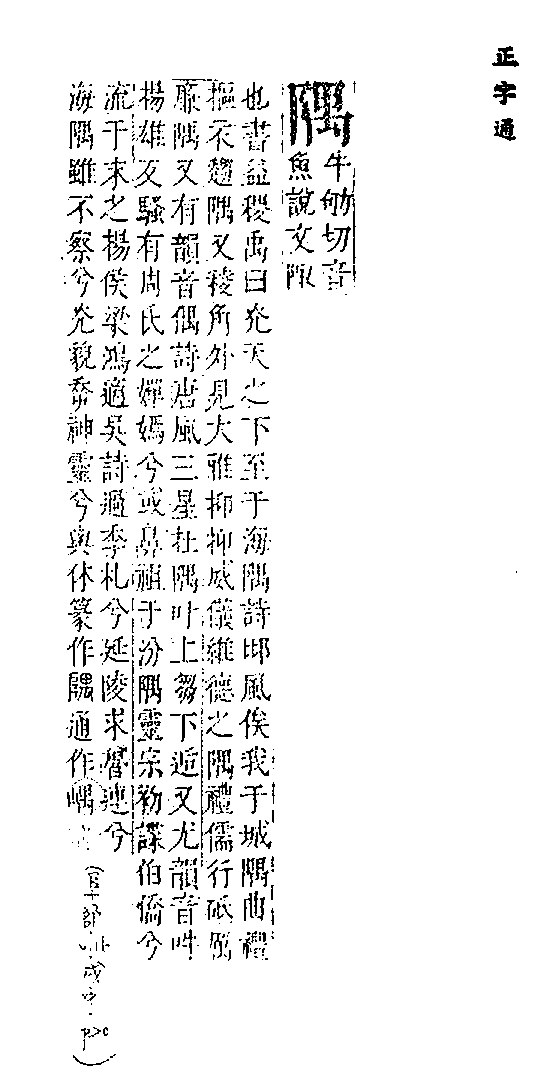 正字通
隅 牛劬切音
魚說文陬
也書益稷禹曰光天之下至于海隅詩邶風俟我于城隅曲禮
摳衣趨隅又稜角外見大雅抑抑威儀維德之隅禮儒行砥厲
廉隅又有韻音偶詩唐風三星在隅叶上芻下逅又尤韻音吽
楊雄反騷有周氏之嬋嫣兮或鼻祖于汾隅靈宗初諜伯僑兮
流于末之楊侯梁鴻適吳詩過季札兮延陵求魯連兮
海隅雖不察兮光貌幸神靈兮與休篆作隅通作嵎